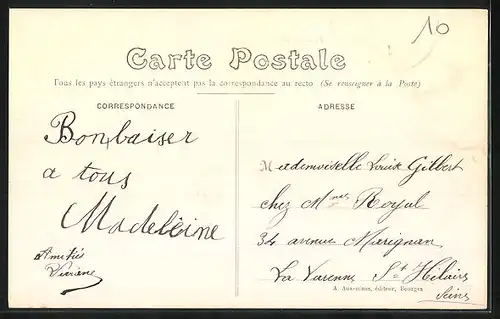 10
Carte Postale
Tous les pays étrangers n'acceptent pas la correspondance au recto (Se renseigner à la Poste)
CORRESPONDANCE
Bon baiser
a tous
Madeleine
Amitiés
Viviane
ADRESSE
Mademoiselle Louise Gilbert
chez Mmes Royal
34 avenue Marignan
La Varenne St Hilaire
Seine
éditeur, Bourges